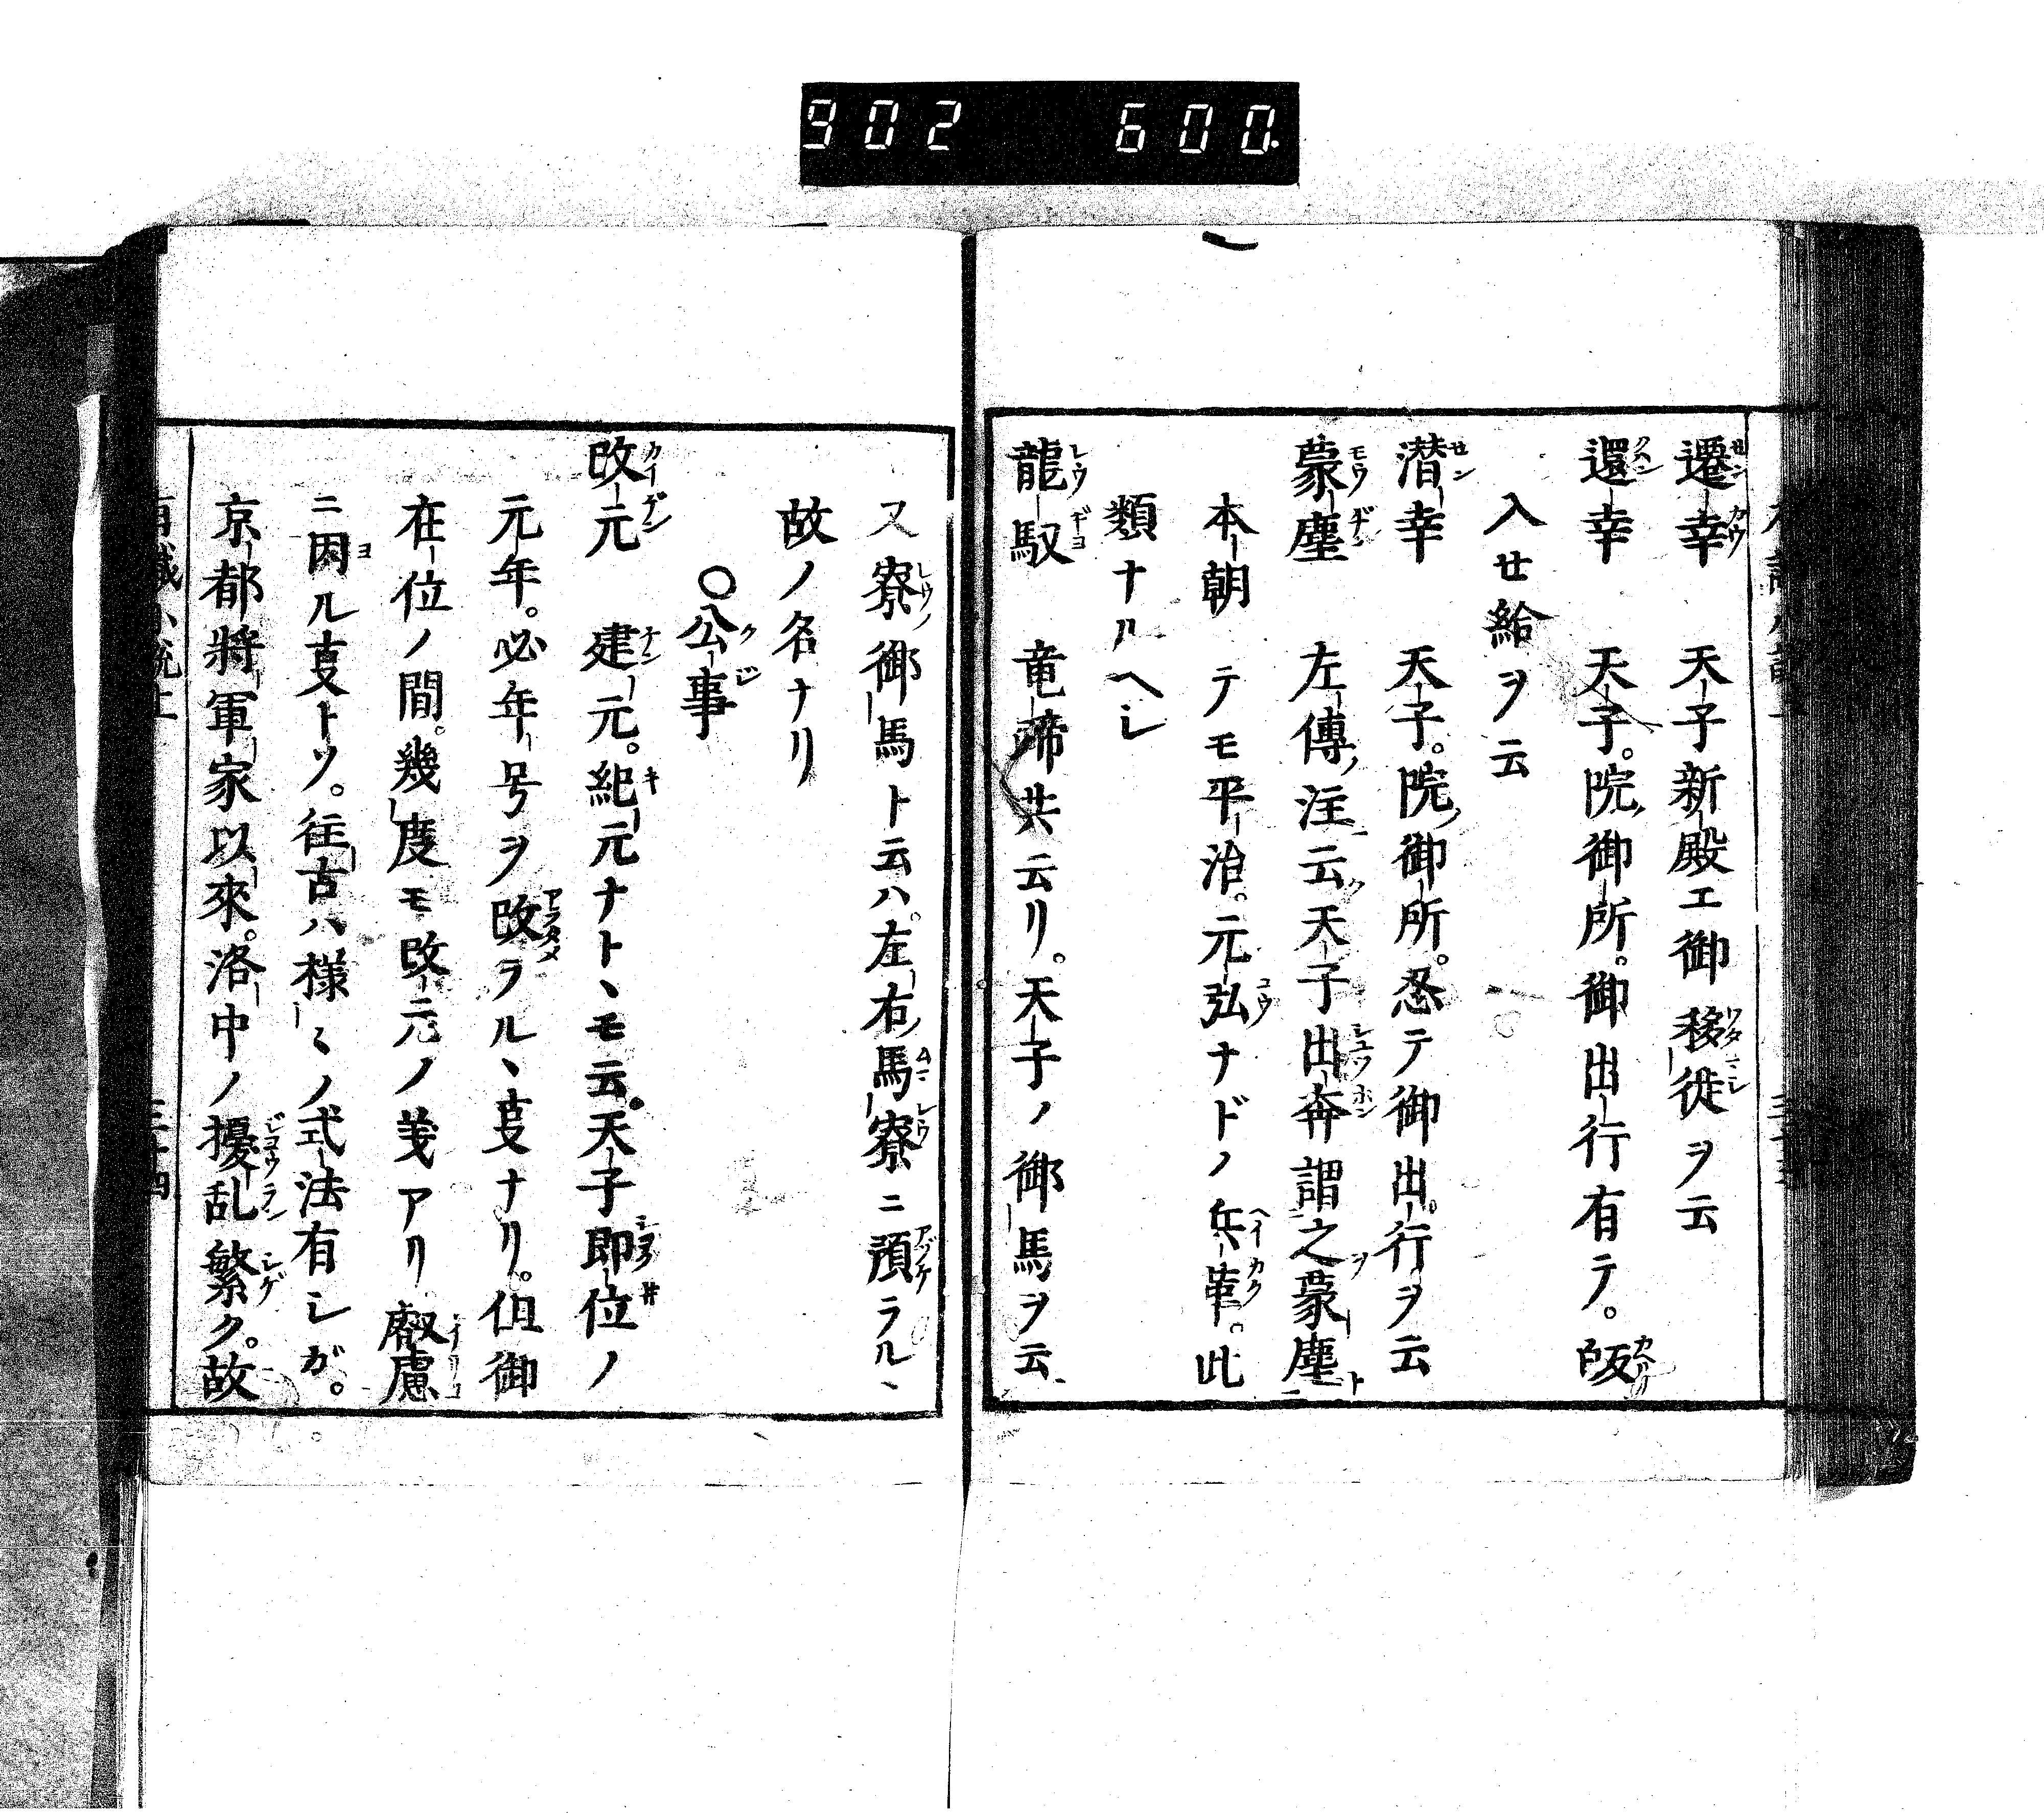 902 600.
遷幸 天子新殿エ御移徙ヲ云
還幸 天子。院御所。御出行有テ。皈
入セ給ヲ云
潜幸 天子。院御所。忍テ御出行ヲ云
蒙塵 左傳注云天子出奔謂之蒙塵
本朝 テモ平治。元弘ナドノ兵革。此
類ナルヘシ
龍馭 竜蹄共云リ。天子ノ御馬ヲ云
又寮御馬ト云ハ。左右馬寮ニ預ラルヽ
故ノ名ナリ
〇公事
改元 建元。紀元ナトヽモ云。天子即位ノ
元年。必年号ヲ改ラルヽ叓ナリ。但御
在位ノ間。幾度モ改元ノ義アリ叡慮
ニ因ル叓トソ。往古ハ様〻ノ式法有シガ。
京都將軍家以來。洛中ノ擾乱繁ク。故